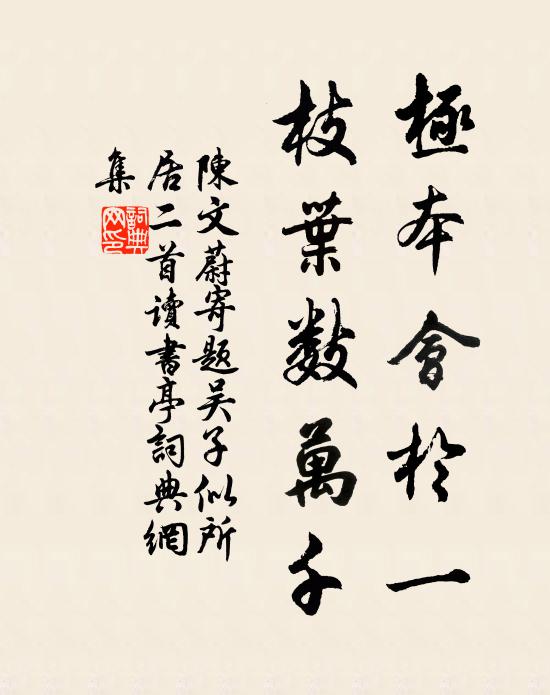 極本會於一
枝葉數萬千
陳文蔚寄題吴子似所
居二首讀書亭詞典網
集
詞典网印